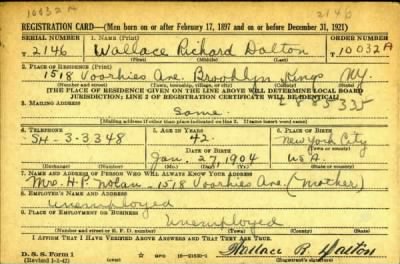 10032A 2146
REGISTRATION CARD—(Men born on or after February 17, 1897 and on or before December 31, 1921)
SERIAL NUMBER 1. NAME (Print) ORDER NUMBER
T 2146 Wallace Richard Dalton T10032A
(First) (Middle) (Last)
2. PLACE OF RESIDENCE (Print)
1518 Voorhies Ave. Brooklyn Kings NY.
(Number and street) (Town, township, village, or city) (County) (State)
[THE PLACE OF RESIDENCE GIVEN ON THE LINE ABOVE WILL DETERMINE LOCAL BOARD
JURISDICTION; LINE 2 OF REGISTRATION CERTIFICATE WILL BE IDENTICAL]
3. MAILING ADDRESS
Same.
(Mailing address if other than place indicated on line 2. If same insert word same)
4. TELEPHONE 5. AGE IN YEARS 6. PLACE OF BIRTH
SH-3-3348 42 New York City
DATE OF BIRTH (Town or county)
Jan. 27, 1904 USA.
(Exchange) (Number) (Mo.) (Day) (Yr.) (State or country)
7. NAME AND ADDRESS OF PERSON WHO WILL ALWAYS KNOW YOUR ADDRESS
Mrs. H.P. Nolan - 1518 Voorhies Ave. (Mother)
8. EMPLOYER'S NAME AND ADDRESS
Unemployed
9. PLACE OF EMPLOYMENT OR BUSINESS
Unemployed
(Number and street or R. F. D. number) (Town) (County) (State)
I AFFIRM THAT I HAVE VERIFIED ABOVE ANSWERS AND THAT THEY ARE TRUE.
D. S. S. Form 1
(Revised 1-1-42) GPO 16-21630-1 Wallace R. Dalton
(Registrant's signature)